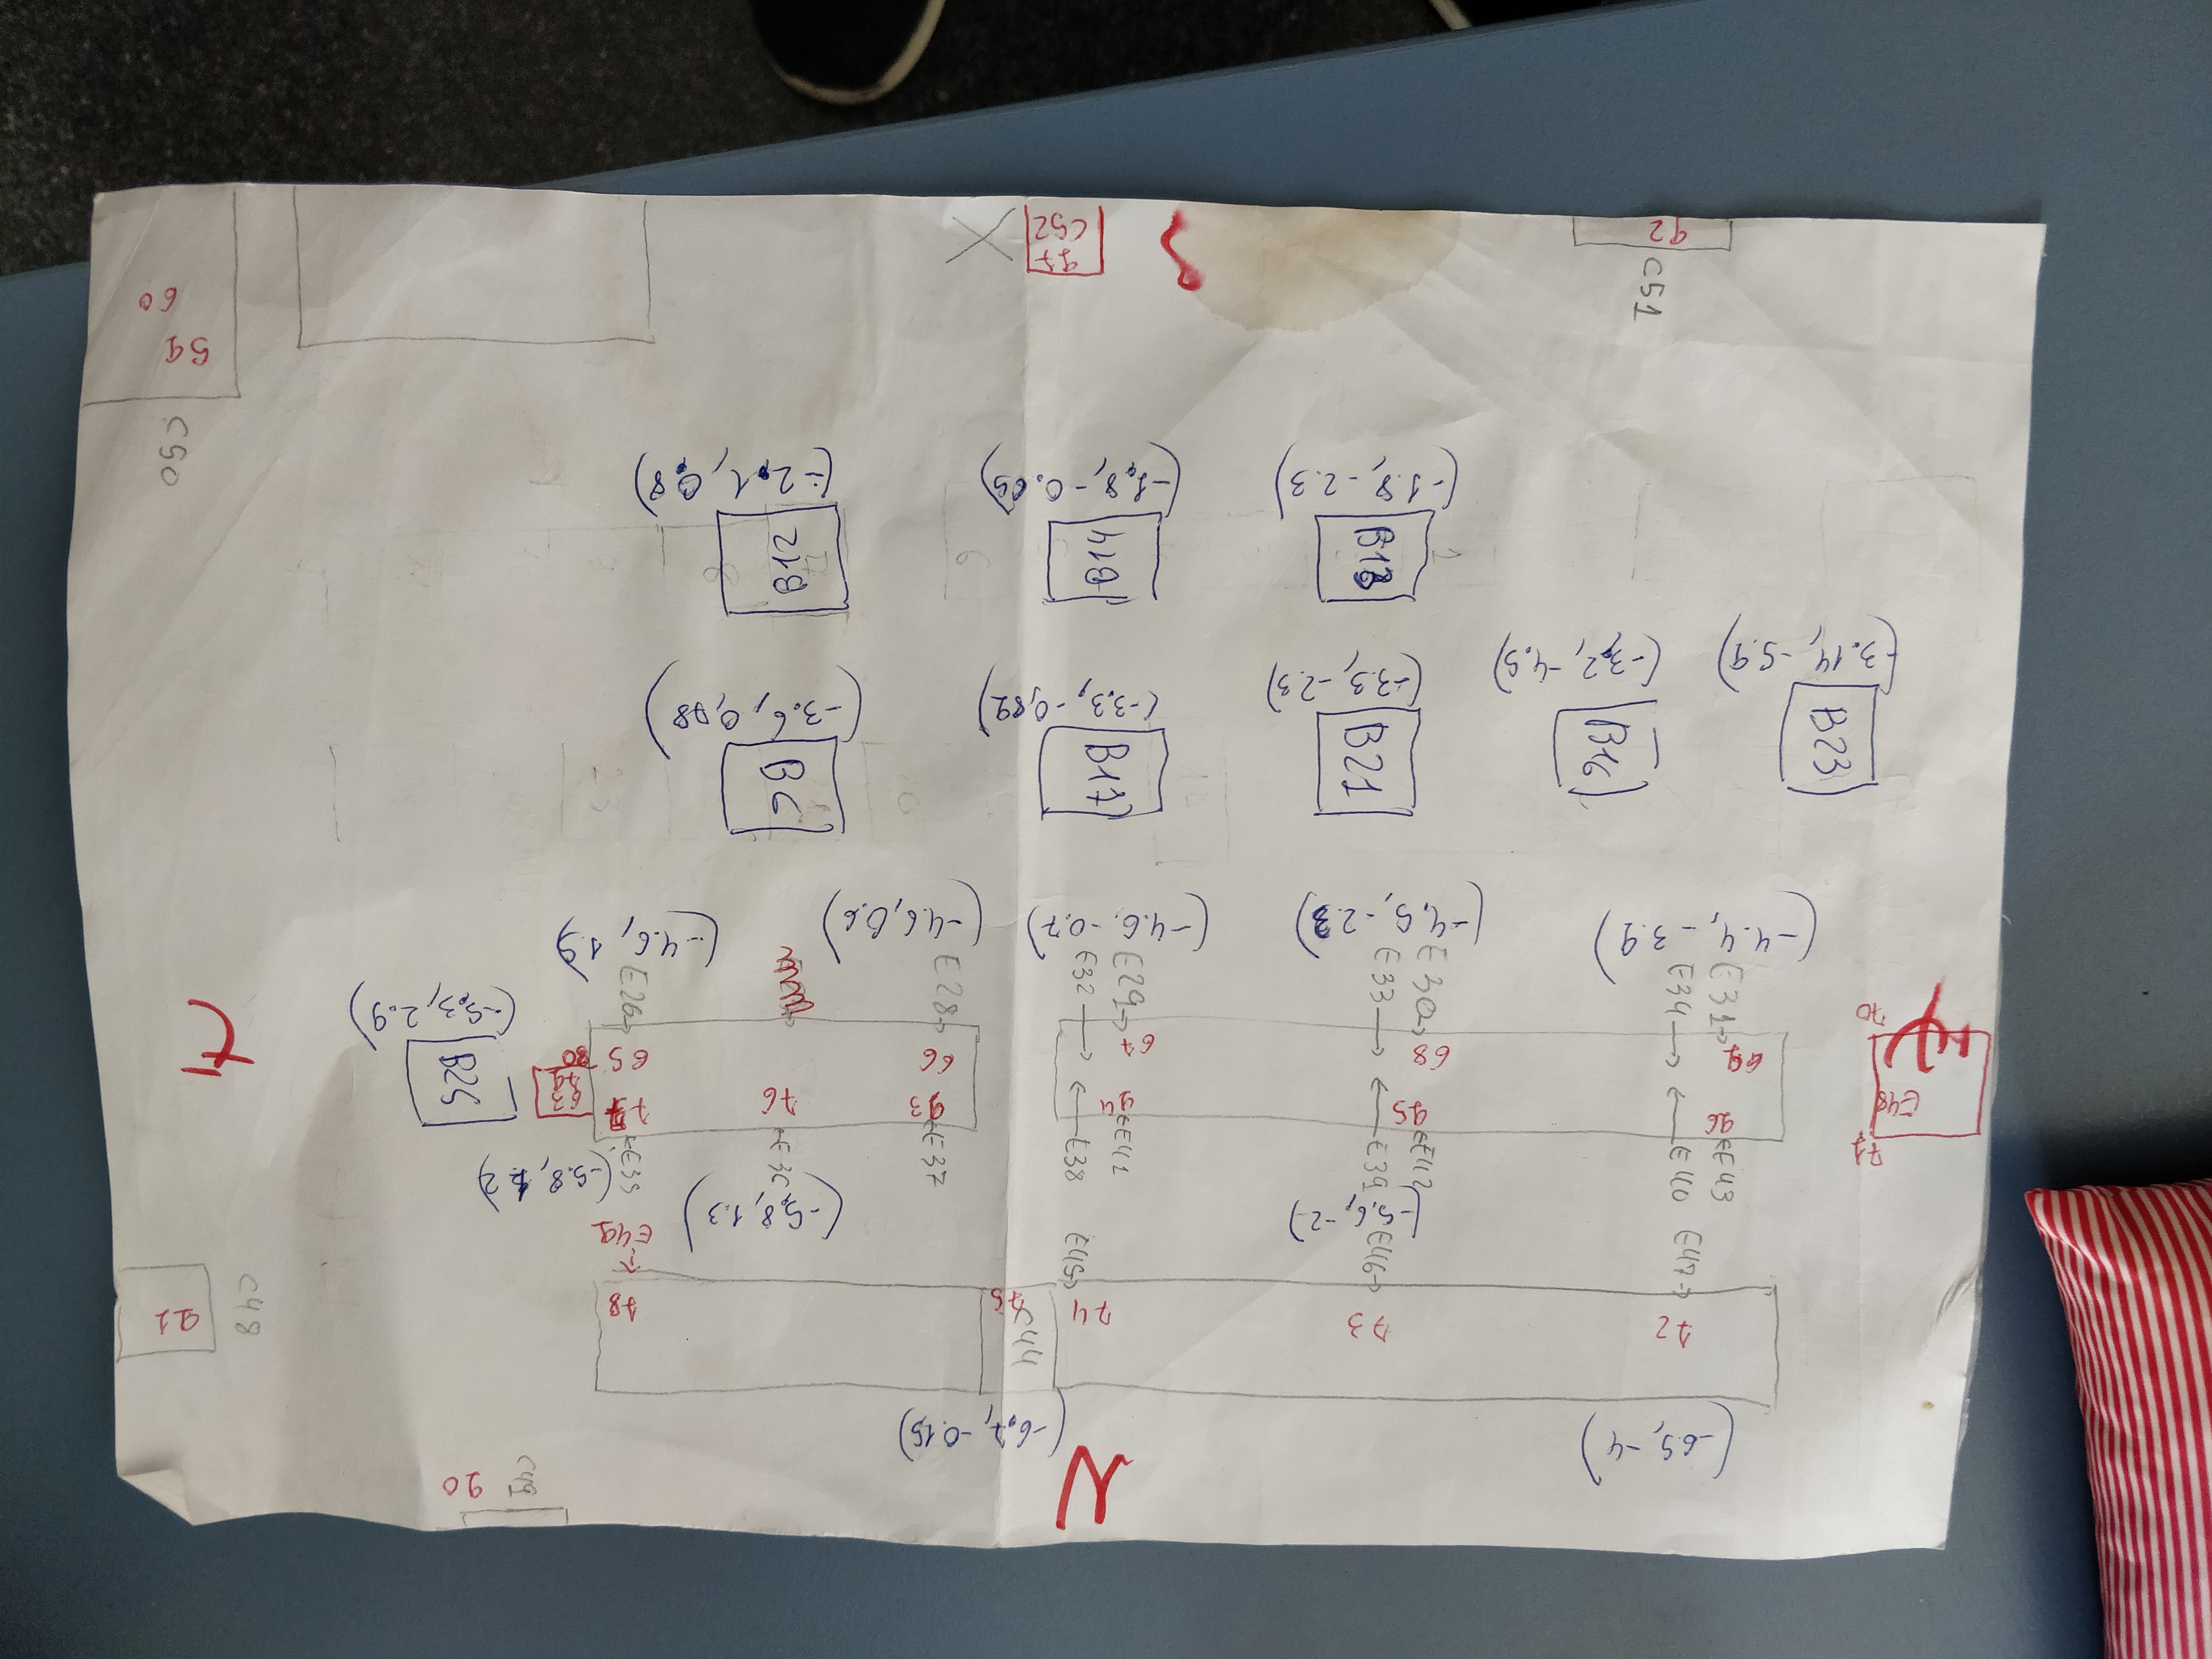 N
C49 90
(-6.5, -4)
(-6,7, -0.15)
C44
72 73 74 75 78
C48 91
E47→ E46→ E45→ E49
(-5.6, -2)
(-5,8, 1.3)
(-5.8, 2)
←E43 E40 ←E42 E39 ←E41 E38 ←E37 ←E36 ←E35
71
E48
70
96 95 94 93 76 77
69 68 67 66 65
63
79
80
B25
(-5,3, 2.9)
E31→ E34→ E30→ E33→ E29→ E32→ E28→ E26→
(-4.4, -3.9)
(-4.5, -2.3)
(-4.6, -0.7)
(-4.6, 0.6)
(-4.6, 1.9)
B23 B16 B21 B17 B6
(-3.14, -5.9)
(-3,2, -4.5)
(-3.3, -2.3)
(-3.3, -0,82)
(-3.6, 0,78)
B13 B14 B12
(-1.8, -2.3)
(-1,8, -0.65)
(-2,1, 0,8)
C50
59
60
C51
92
97
C52